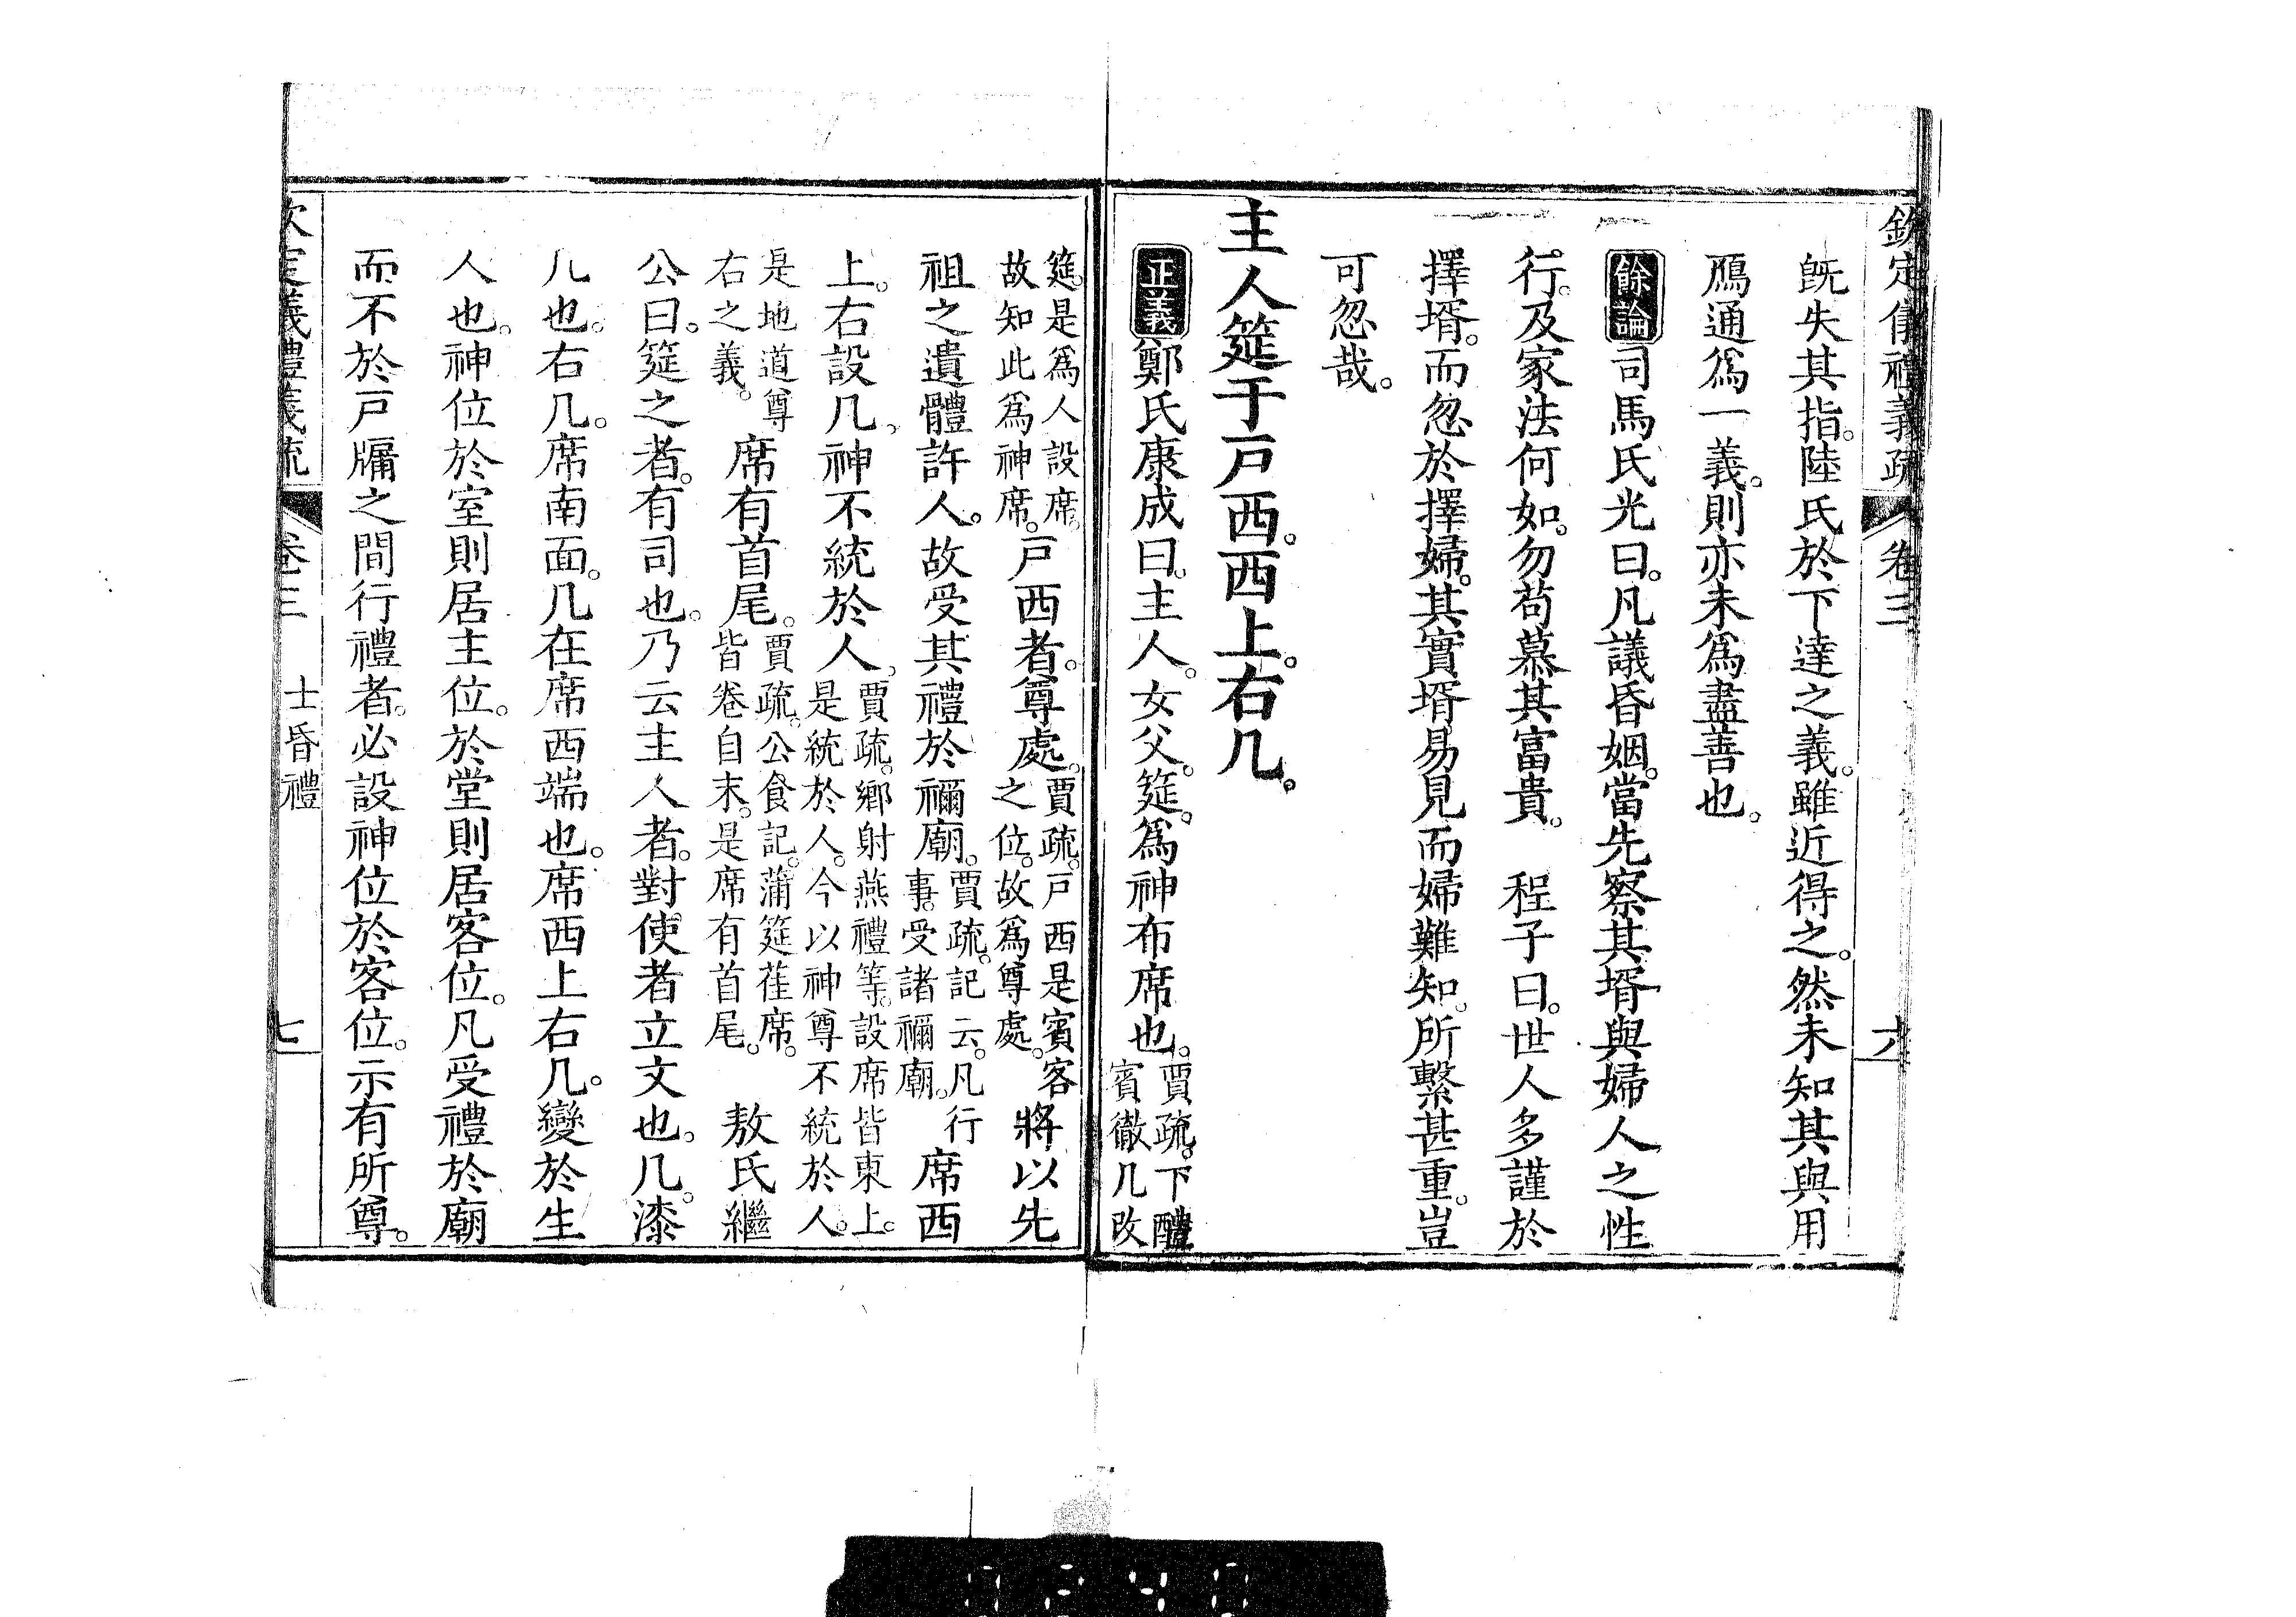 欽定儀禮義疏 卷三 六
既失其指。陸氏於下達之義。雖近得之。然未知其與用
鴈通爲一義。則亦未爲盡善也。
餘論 司馬氏光曰。凡議昏姻。當先察其壻與婦人之性
行。及家法何如。勿苟慕其富貴。 程子曰。世人多謹於
擇壻。而忽於擇婦。其實壻易見而婦難知。所繫甚重。豈
可忽哉。
主人筵于戸西。西上。右几。
正義 鄭氏康成曰。主人。女父。筵。爲神布席也。賈疏。下醴賓徹几改
筵。是爲人設席。故知此爲神席。戸西者。尊處。賈疏。戸西是賓客之位。故爲尊處。將以先
祖之遺體許人。故受其禮於禰廟。賈疏。記云。凡行事。受諸禰廟。席西
上。右設几。神不統於人。賈疏。鄉射燕禮等。設席皆東上。是統於人。今以神尊不統於人。
是地道尊右之義。席有首尾。賈疏。公食記。蒲筵萑席。皆卷自末。是席有首尾。 敖氏繼
公曰。筵之者。有司也。乃云主人者。對使者立文也。几。漆
几也。右几。席南面。几在席西端也。席西上右几。變於生
人也。神位於室則居主位。於堂則居客位。凡受禮於廟
而不於戸牖之間行禮者。必設神位於客位。示有所尊。
欽定儀禮義疏 卷三 士昏禮 七